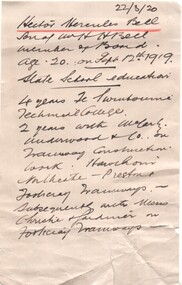 22/3/20
Hector Hercules Bell
Son of Mr H H Bell
member of Board.
Age 20. on Sept 12th 1919.
State School education
4 years To Swinbourne
Technical College.
2 years with
Underwood & Co. on
Tramway Construction
work. Hawthorn
Northcote - Preston
Footscray Tramways. -
Subsequently with Messrs
on
Footscray Tramways